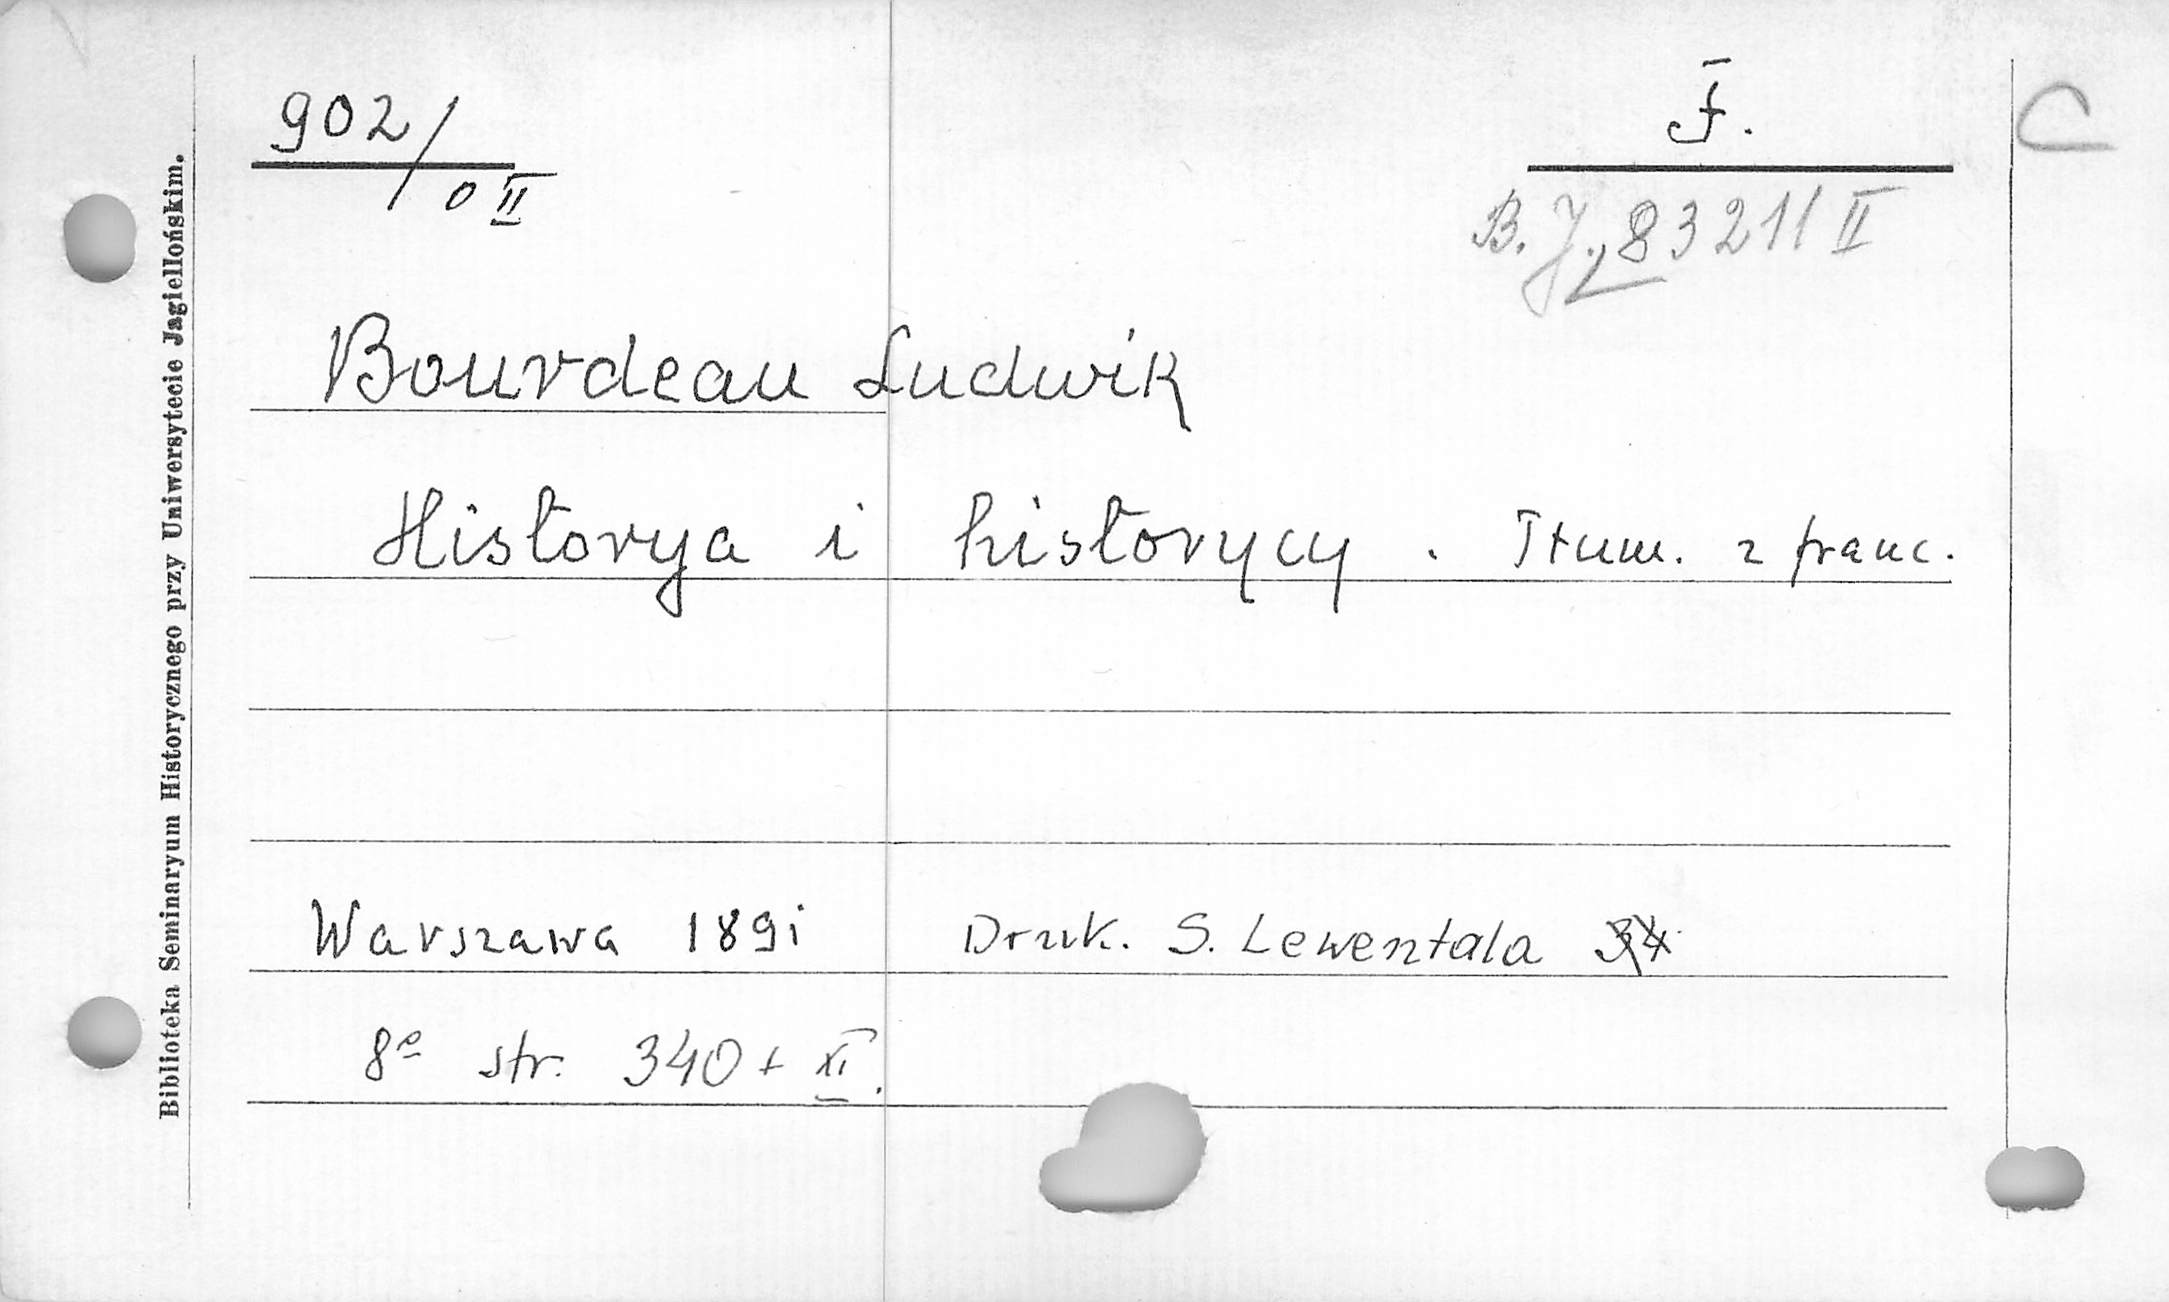 902/
0 II
F.
C
B. J. 83211 II
Bourdeau Ludwik
Historya i historycy. Tłum. z franc.
Warszawa 1891 Druk. S. Lewentala
8º str. 340 + XI.
Biblioteka Seminaryum Historycznego przy Uniwersytecie Jagiellońskim.